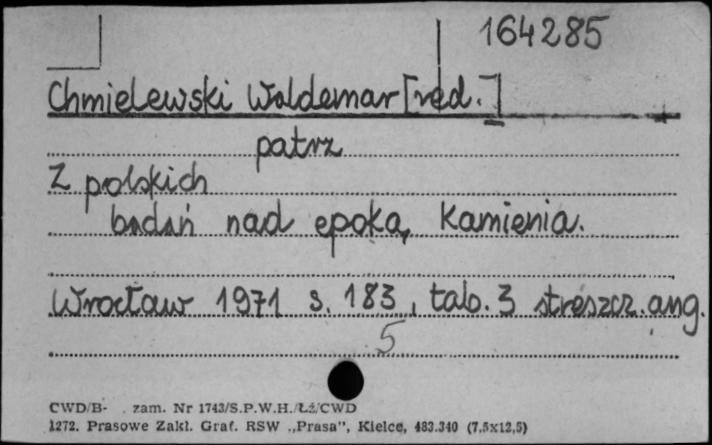 164285
Chmielewski Waldemar [red.]
patrz
Z polskich
badań nad epoką kamienia.
Wrocław 1971 s. 183, tab. 3 streszcz. ang.
5
CWD/B- . zam. Nr 1743/S.P.W.H./Łż/CWD
1272. Prasowe Zakł. Graf. RSW „Prasa”, Kielce, 483.340 (7,5x12,5)